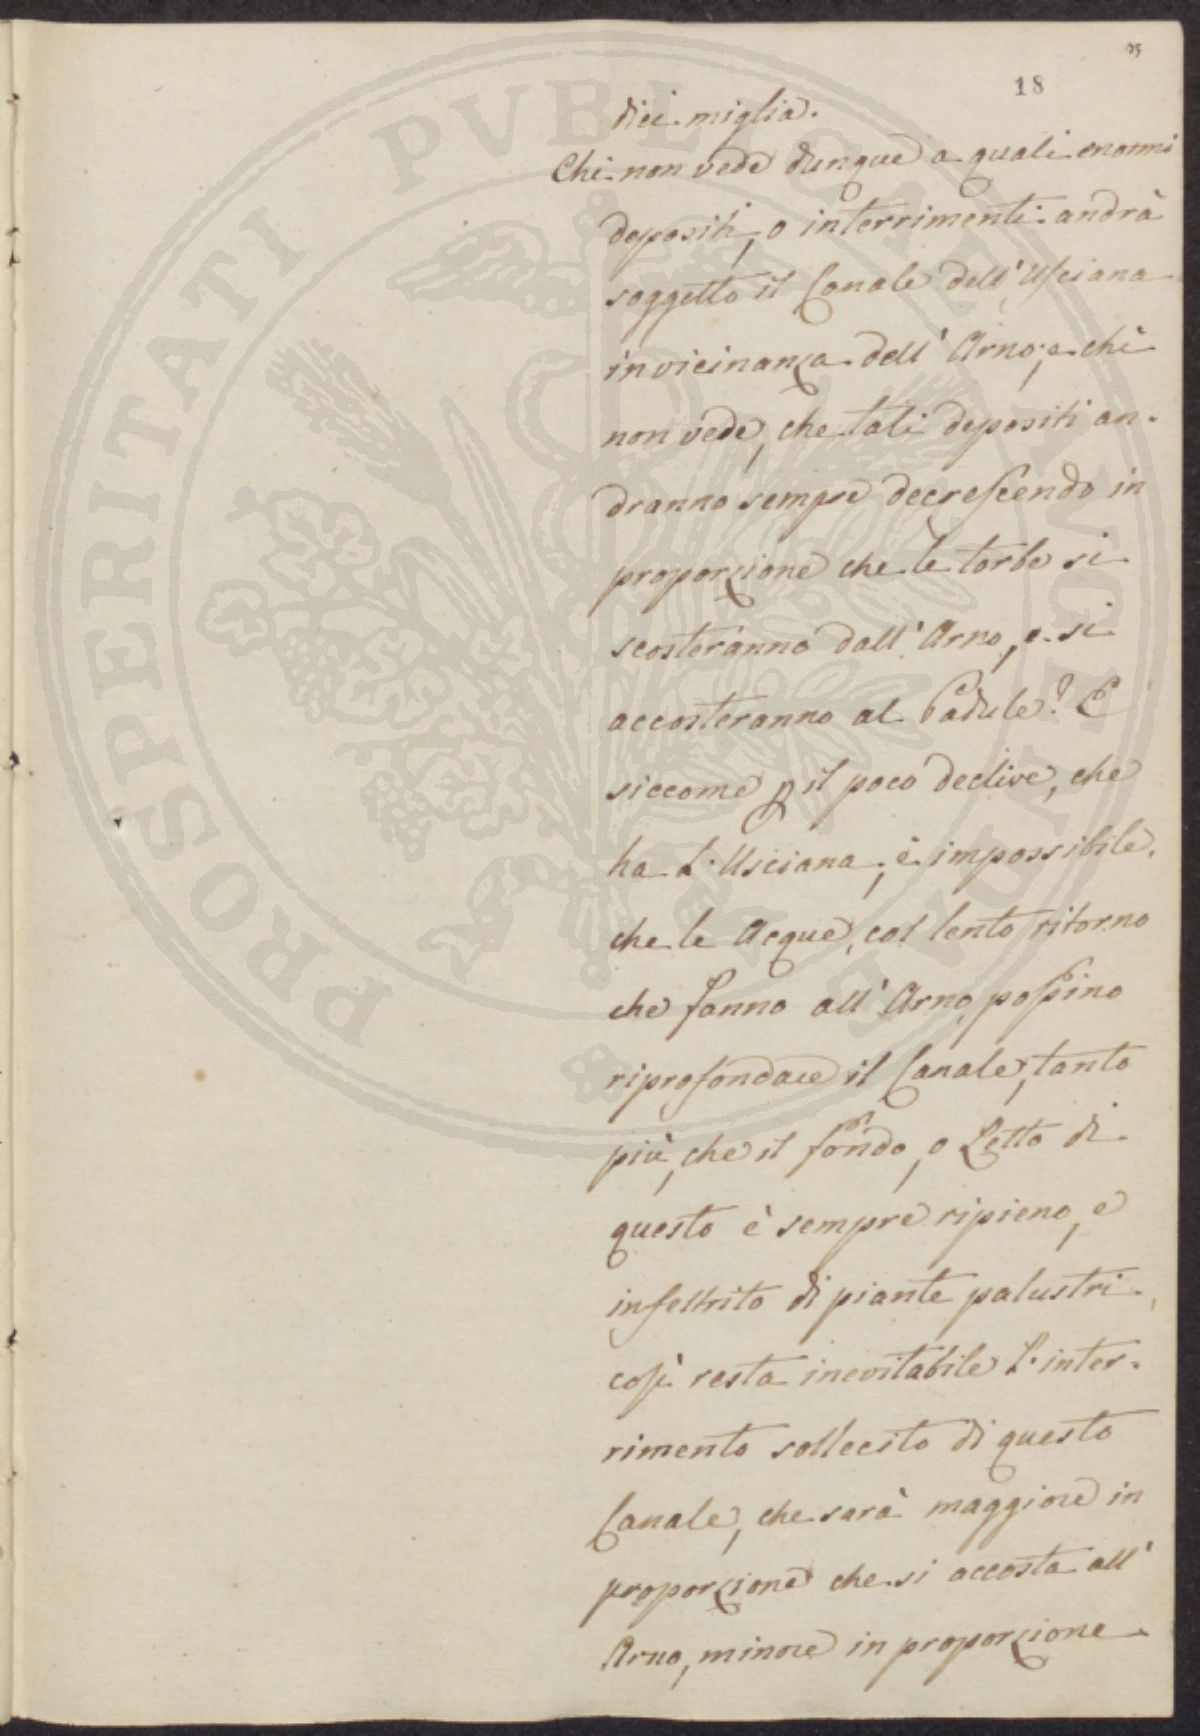 18
dieci miglia.
Chi non vede dunque a quali enormi
depositi, o interrimenti andrà
soggetto il Canale dell'Usciana
in vicinanza dell'Arno, e chi
non vede, che tali depositi an-
dranno sempre decrescendo in
proporzione che le torbe si
scosteranno dall'Arno, e si
accosteranno al Padule? E
siccome p il poco declive, che
ha l'Usciana, è impossibile,
che le Acque, col lento ritorno
che fanno all'Arno possino
riprofondare il Canale, tanto
più, che il fondo, o Letto di
questo è sempre ripieno, e
infeltrito di piante palustri,
così resta inevitabile l'inter-
rimento sollecito di questo
Canale, che sarà maggiore in
proporzione che si accosta all'
Arno, minore in proporzione
PROSPERITATI PVBLICAE AVGENDAE